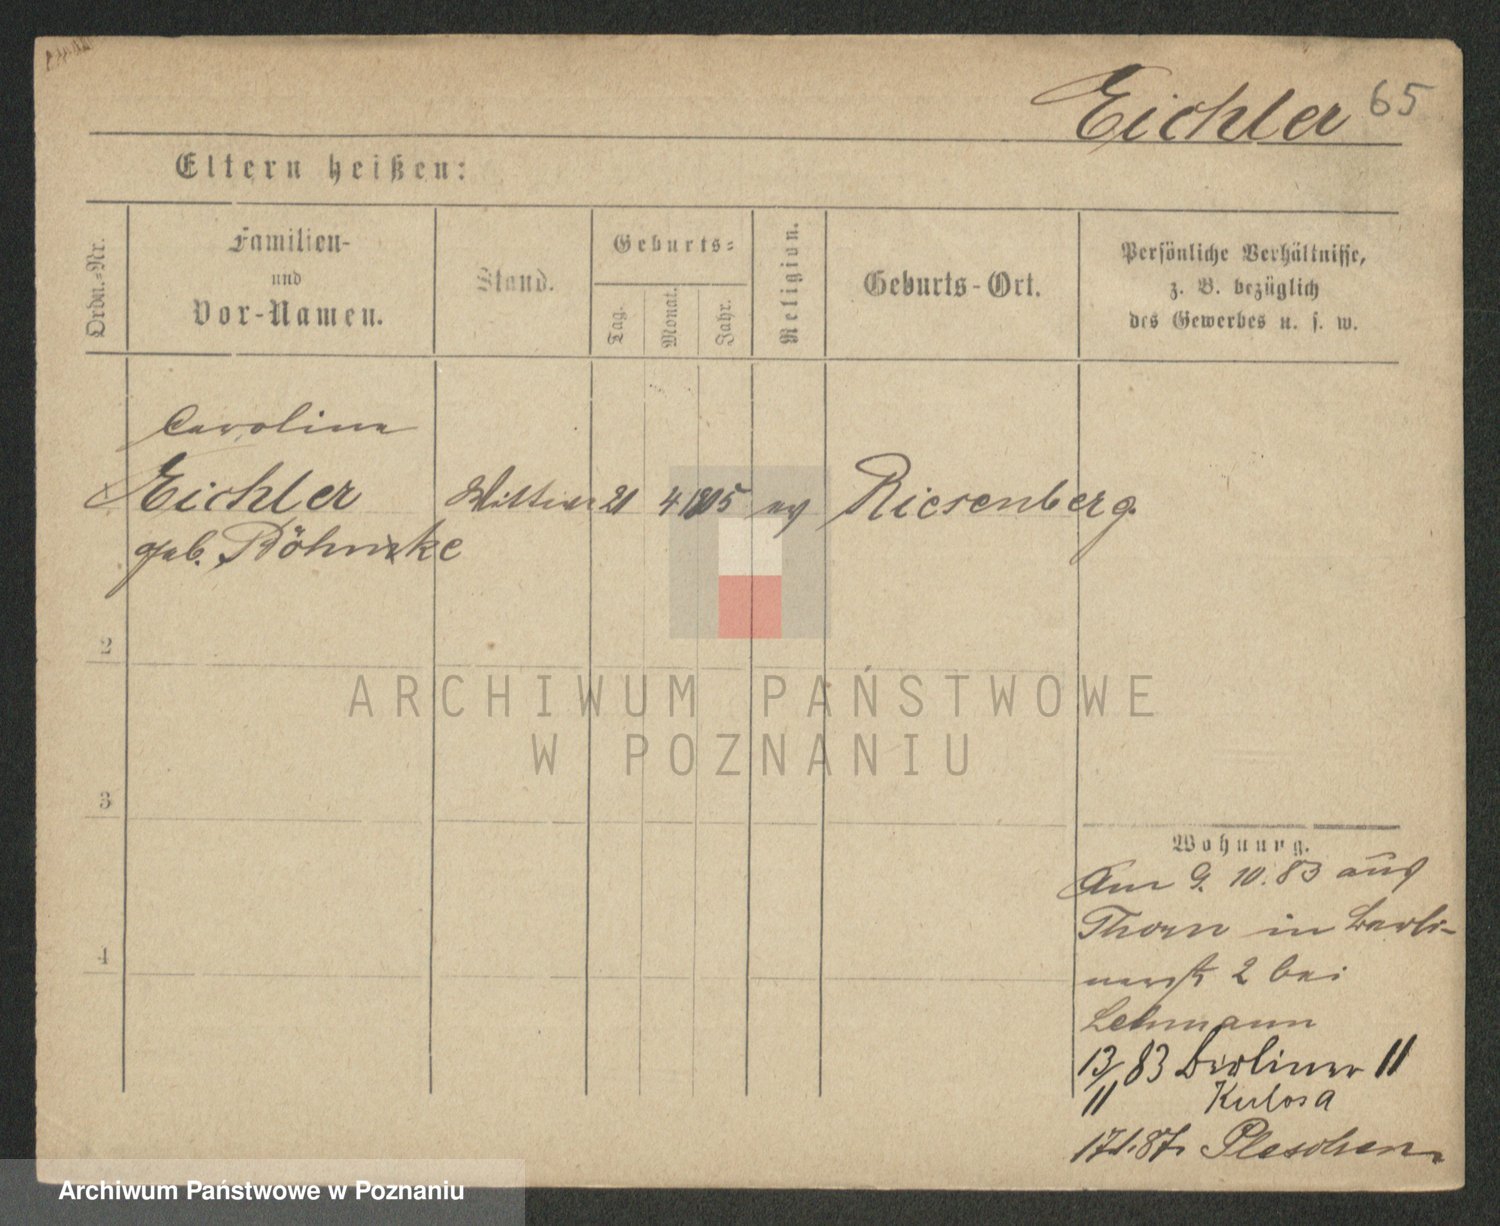 Eichler 65
Eltern heißen:
Ordn.-Nr.
Familien-
und
Vor-Namen.
Stand.
Geburts-
Tag.
Monat.
Jahr.
Religion.
Geburts-Ort.
Persönliche Verhältnisse,
z. B. bezüglich
des Gewerbes u. s. w.
Caroline
Eichler Wittwe 21 4 1805 ev Riesenberg.
geb. Böhnke
2
3
4
ARCHIWUM PAŃSTWOWE
W POZNANIU
Wohnung.
Am 9. 10. 83 aus
Thorn in Berli-
nerstr 2 bei
Lehmann
13/11 83 Berliner 11
17.1.87. Pleschen
Archiwum Państwowe w Poznaniu